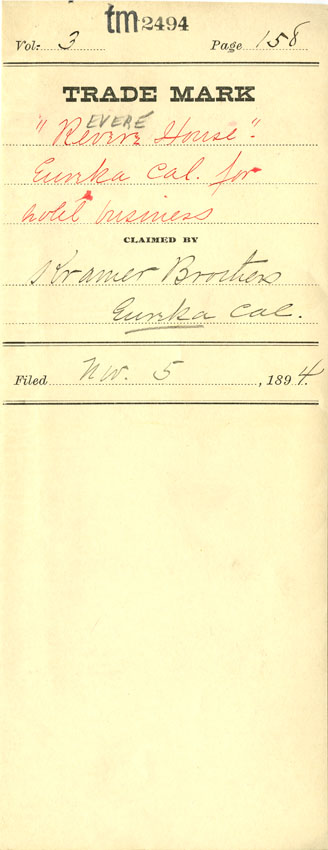 tm 2494
Vol. 3 Page 158
TRADE MARK
EVERE
"Revire House".
Eureka Cal. for
hotel business
CLAIMED BY
Kramer Brothers
Eureka Cal.
Filed Nov. 5, 1894